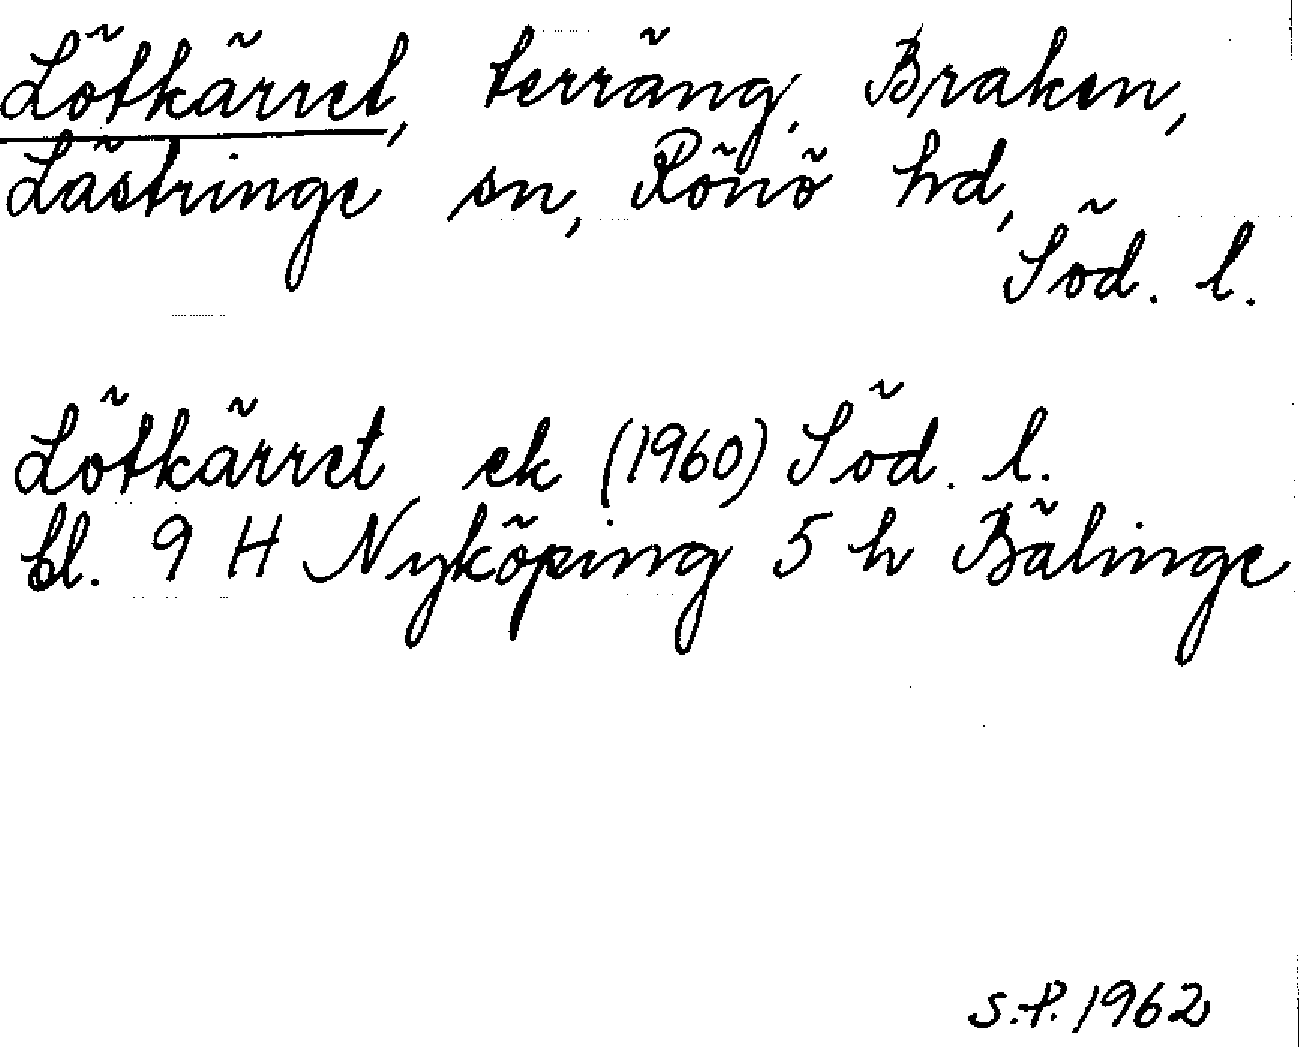 Lötkärret, terräng, Braken,
Lästringe sn, Rönö hd,
Söd. l.
Lötkärret ek (1960) Söd. l.
bl. 9 H Nyköping 5 h Bälinge
S.P. 1962